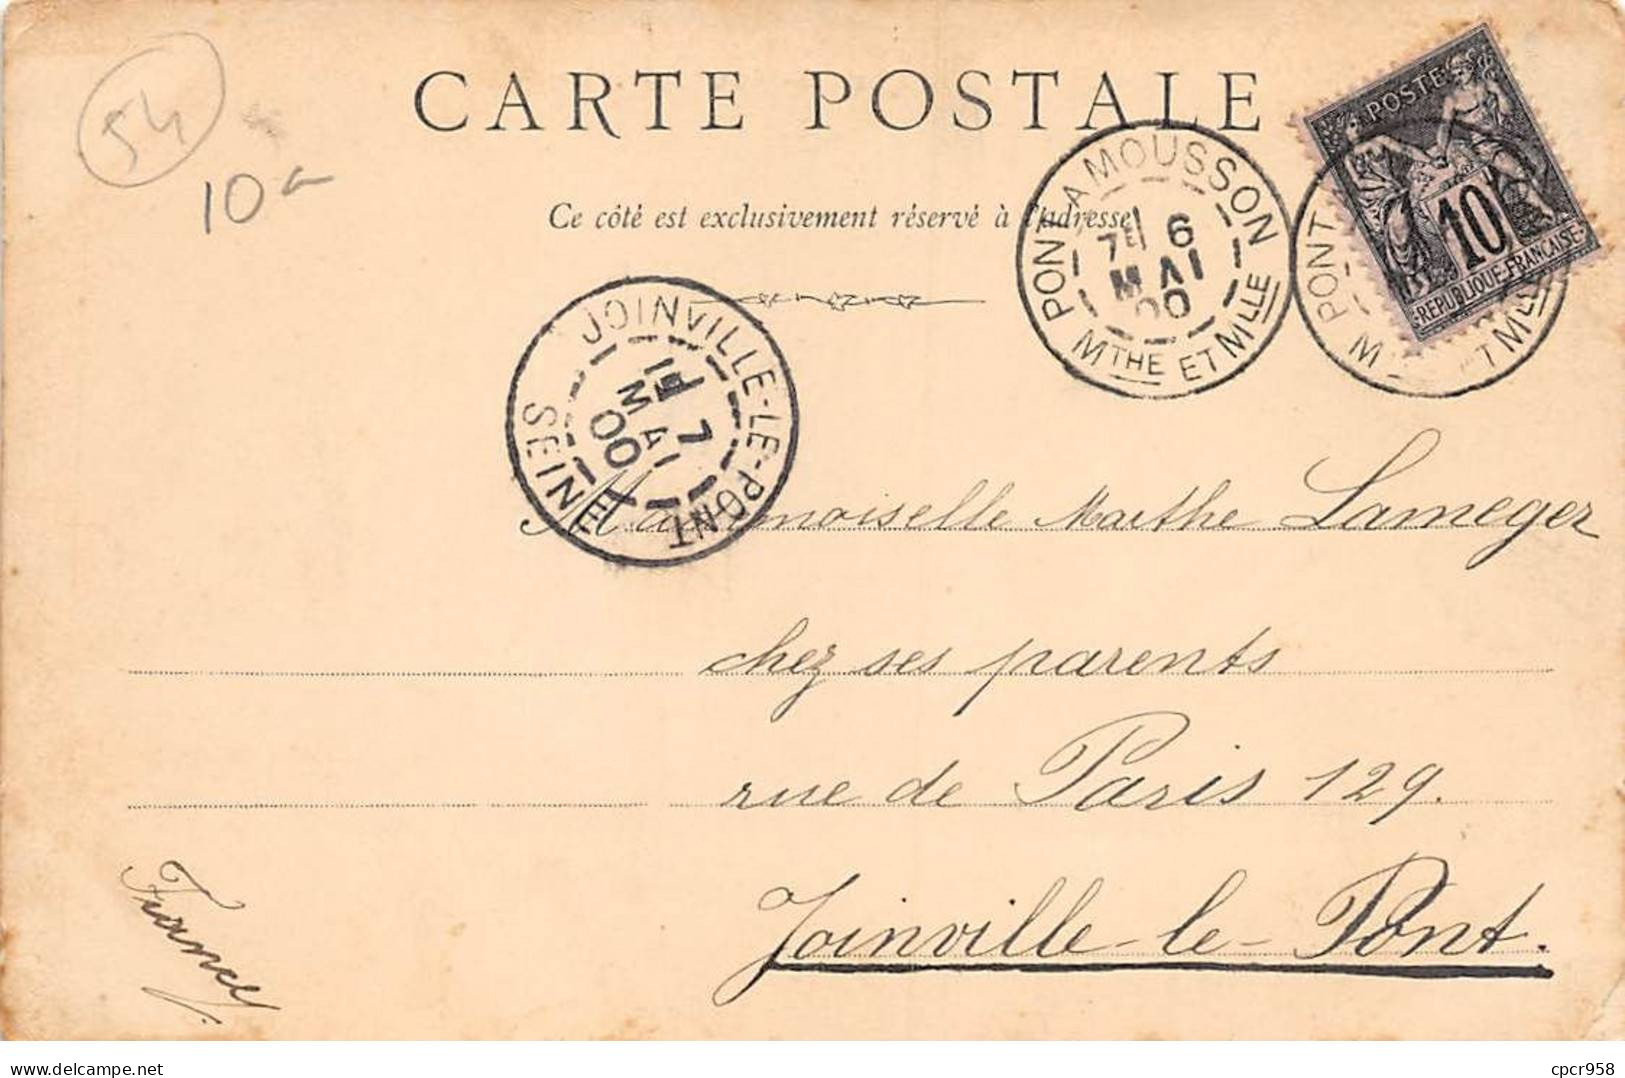 54
10
CARTE POSTALE
Ce côté est exclusivement réservé à l'adresse
POSTE
10
REPUBLIQUE FRANCAISE
PONT A MOUSSON
7E 6
MAI
00
MTHE ET MLLE
PONT
JOINVILLE-LE-PONT
7
MAI
00
SEINE
Mademoiselle Marthe Lameger
chez ses parents
rue de Paris 129.
Joinville-le-Pont.
delcampe.net
cpcr958